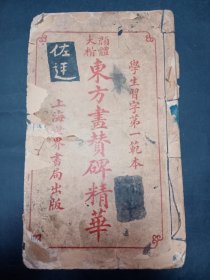 學生習字第一範本
顏體
大楷
東方畫贊碑精華
上海世界書局出版
佐廷